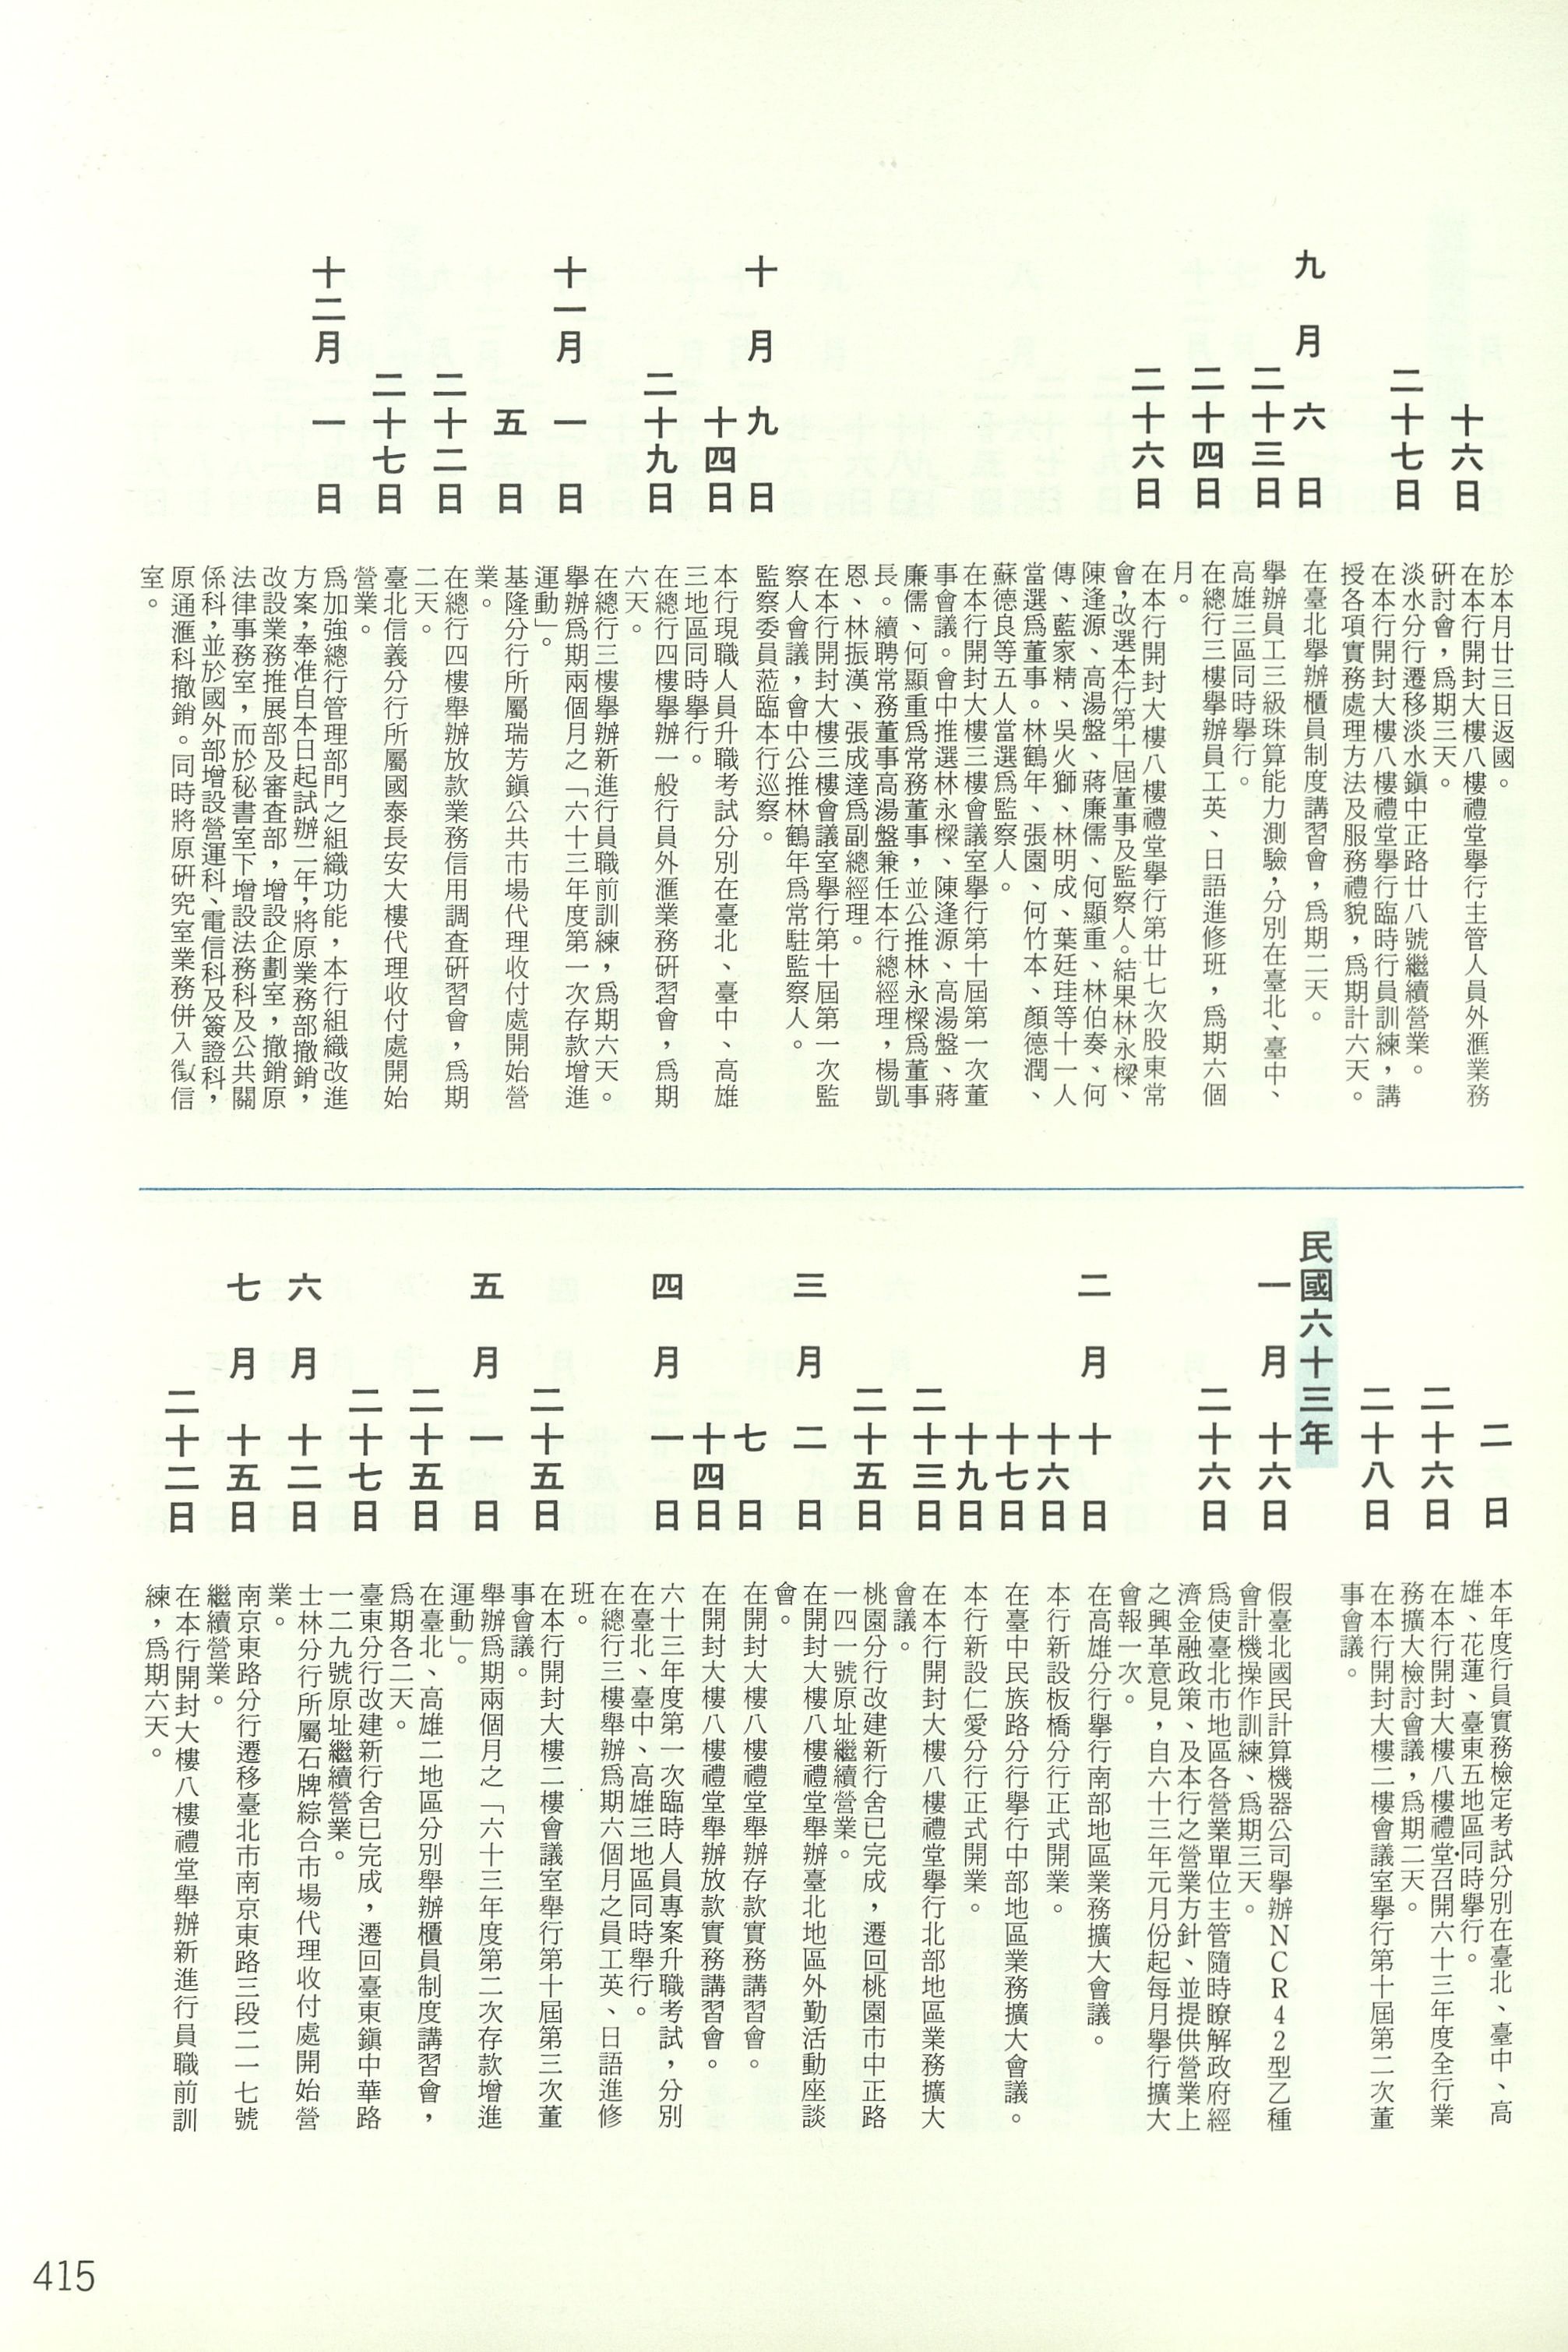 於本月廿三日返國。
十六日
在本行開封大樓八樓禮堂擧行主管人員外滙業務
硏討會，爲期三天。
淡水分行遷移淡水鎭中正路廿八號繼續營業。
二十七日
在本行開封大樓八樓禮堂擧行臨時行員訓練，講
授各項實務處理方法及服務禮貌，爲期計六天。
九月六日
在臺北擧辦櫃員制度講習會，爲期二天。
二十三日
擧辦員工三級珠算能力測驗，分別在臺北、臺中、
高雄三區同時擧行。
二十四日
在總行三樓擧辦員工英、日語進修班，爲期六個
月。
二十六日
在本行開封大樓八樓禮堂擧行第廿七次股東常
會，改選本行第十屆董事及監察人。結果林永樑、
陳逢源、高湯盤、蔣廉儒、何顯重、林伯奏、何
傳、藍家精、吳火獅、林明成、葉廷珪等十一人
當選爲董事。林鶴年、張園、何竹本、顏德潤、
蘇德良等五人當選爲監察人。
在本行開封大樓三樓會議室擧行第十屆第一次董
事會議。會中推選林永樑、陳逢源、高湯盤、蔣
廉儒、何顯重爲常務董事，並公推林永樑爲董事
長。續聘常務董事高湯盤兼任本行總經理，楊凱
恩、林振漢、張成達爲副總經理。
在本行開封大樓三樓會議室擧行第十屆第一次監
察人會議，會中公推林鶴年爲常駐監察人。
十月九日
監察委員蒞臨本行巡察。
十四日
本行現職人員升職考試分別在臺北、臺中、高雄
三地區同時擧行。
二十九日
在總行四樓擧辦一般行員外滙業務硏習會，爲期
六天。
十一月一日
在總行三樓擧辦新進行員職前訓練，爲期六天。
擧辦爲期兩個月之「六十三年度第一次存款增進
運動」。
五日
基隆分行所屬瑞芳鎭公共市場代理收付處開始營
業。
二十二日
在總行四樓擧辦放款業務信用調査硏習會，爲期
二天。
二十七日
臺北信義分行所屬國泰長安大樓代理收付處開始
營業。
十二月一日
爲加強總行管理部門之組織功能，本行組織改進
方案，奉准自本日起試辦二年，將原業務部撤銷，
改設業務推展部及審査部，增設企劃室，撤銷原
法律事務室，而於秘書室下增設法務科及公共關
係科，並於國外部增設營運科、電信科及簽證科，
原通滙科撤銷。同時將原硏究室業務併入徵信
室。
二日
本年度行員實務檢定考試分別在臺北、臺中、高
雄、花蓮、臺東五地區同時擧行。
二十六日
在本行開封大樓八樓禮堂召開六十三年度全行業
務擴大檢討會議，爲期二天。
二十八日
在本行開封大樓二樓會議室擧行第十屆第二次董
事會議。
民國六十三年
一月十六日
假臺北國民計算機器公司擧辦NCR42型乙種
會計機操作訓練、爲期三天。
二十六日
爲使臺北市地區各營業單位主管隨時瞭解政府經
濟金融政策、及本行之營業方針、並提供營業上
之興革意見，自六十三年元月份起每月擧行擴大
會報一次。
二月十日
在高雄分行擧行南部地區業務擴大會議。
十六日
本行新設板橋分行正式開業。
十七日
在臺中民族路分行擧行中部地區業務擴大會議。
十九日
本行新設仁愛分行正式開業。
二十三日
在本行開封大樓八樓禮堂擧行北部地區業務擴大
會議。
二十五日
桃園分行改建新行舍已完成，遷回桃園市中正路
一四一號原址繼續營業。
三月二日
在開封大樓八樓禮堂擧辦臺北地區外勤活動座談
會。
七日
在開封大樓八樓禮堂擧辦存款實務講習會。
十四日
在開封大樓八樓禮堂擧辦放款實務講習會。
四月一日
六十三年度第一次臨時人員專案升職考試，分別
在臺北、臺中、高雄三地區同時擧行。
在總行三樓擧辦爲期六個月之員工英、日語進修
班。
二十五日
在本行開封大樓二樓會議室擧行第十屆第三次董
事會議。
五月一日
擧辦爲期兩個月之「六十三年度第二次存款增進
運動」。
二十五日
在臺北、高雄二地區分別擧辦櫃員制度講習會，
爲期各二天。
二十七日
臺東分行改建新行舍已完成，遷回臺東鎭中華路
一二九號原址繼續營業。
六月十二日
士林分行所屬石牌綜合市場代理收付處開始營
業。
七月十五日
南京東路分行遷移臺北市南京東路三段二一七號
繼續營業。
二十二日
在本行開封大樓八樓禮堂擧辦新進行員職前訓
練，爲期六天。
415